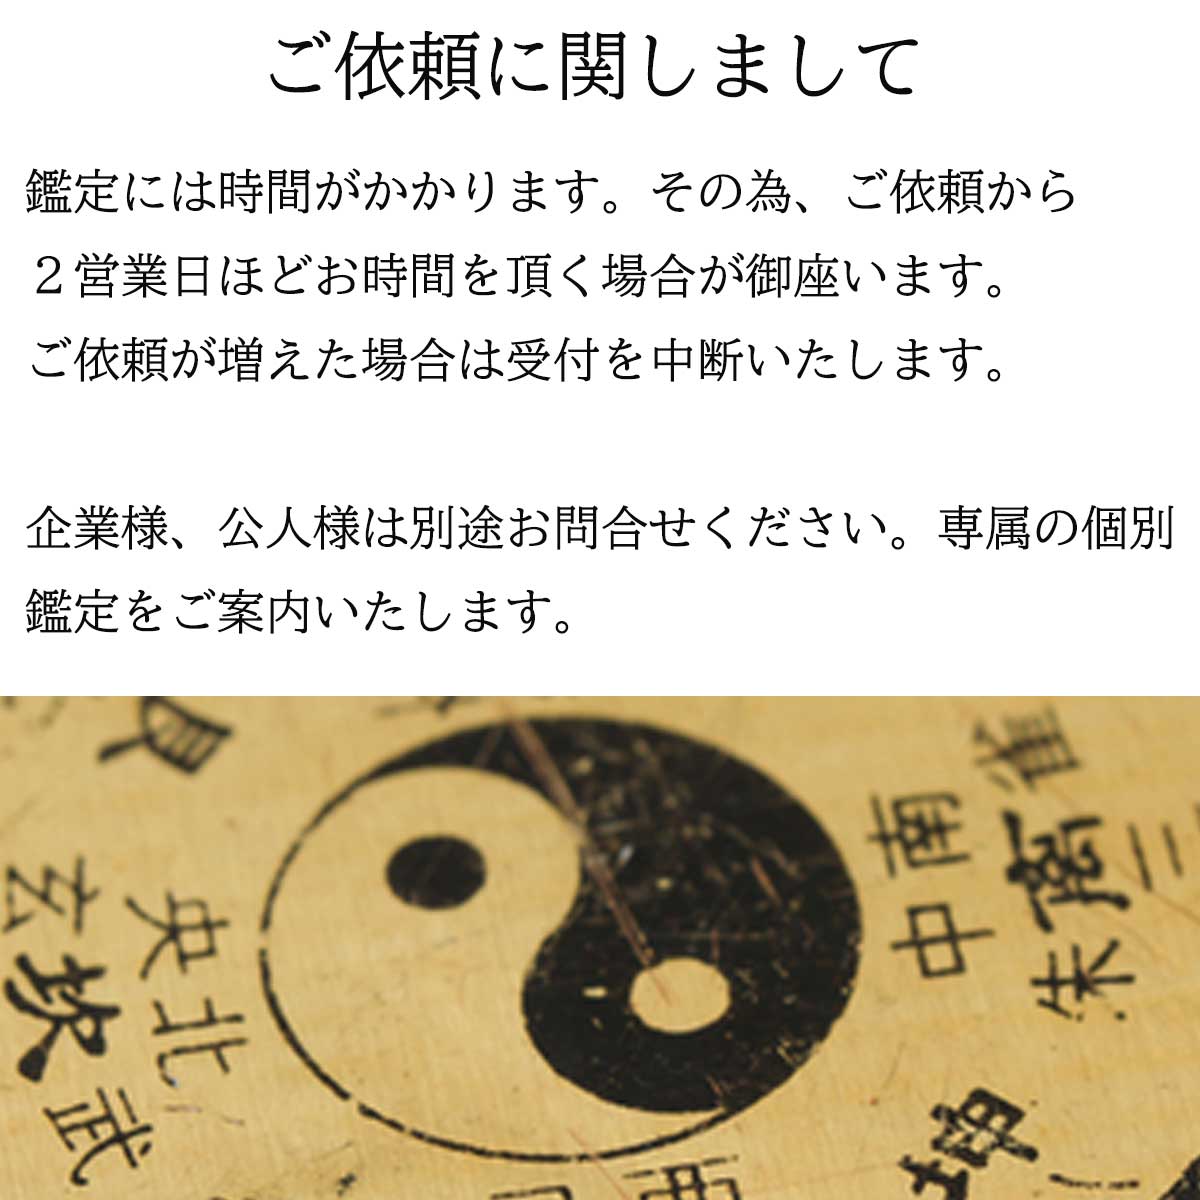 ご依頼に関しまして
鑑定には時間がかかります。その為、ご依頼から
２営業日ほどお時間を頂く場合が御座います。
ご依頼が増えた場合は受付を中断いたします。
企業様、公人様は別途お問合せください。専属の個別
鑑定をご案内いたします。
艮
玄
坎
武
央
北
南
中
離
朱
坤
西